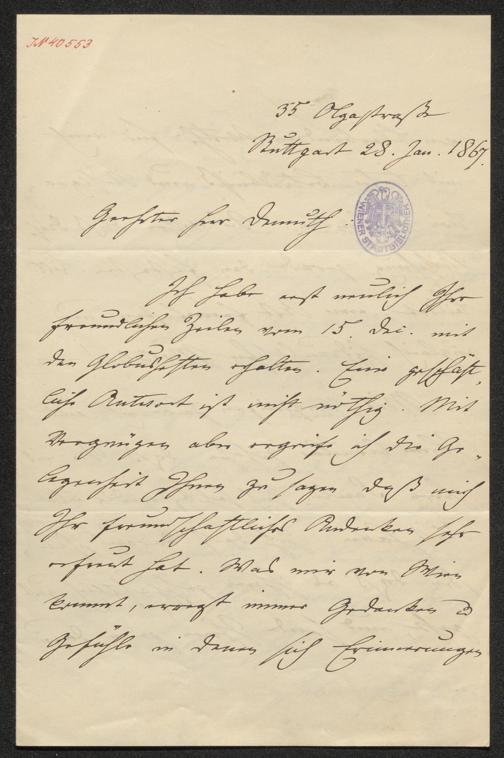 JN 40553
35 Olgastraße
Stuttgart 28. Jan. 1867.
WIENER STADTBIBLIOTHEK
Geehrter Herr Demuth.
Ich habe erst neulich Ihre
freundlichen Zeilen vom 15. Dec. mit
den Globusheften erhalten. Eine geschäft-
liche Antwort ist nicht nöthig. Mit
Vergnügen aber ergreife ich die Ge-
legenheit Ihnen zu sagen daß mich
Ihr freundschaftliches Andenken sehr
erfreut hat. Was mir von Wien
kommt, erregt immer Gedanken &
Gefühle in denen sich Erinnerungen